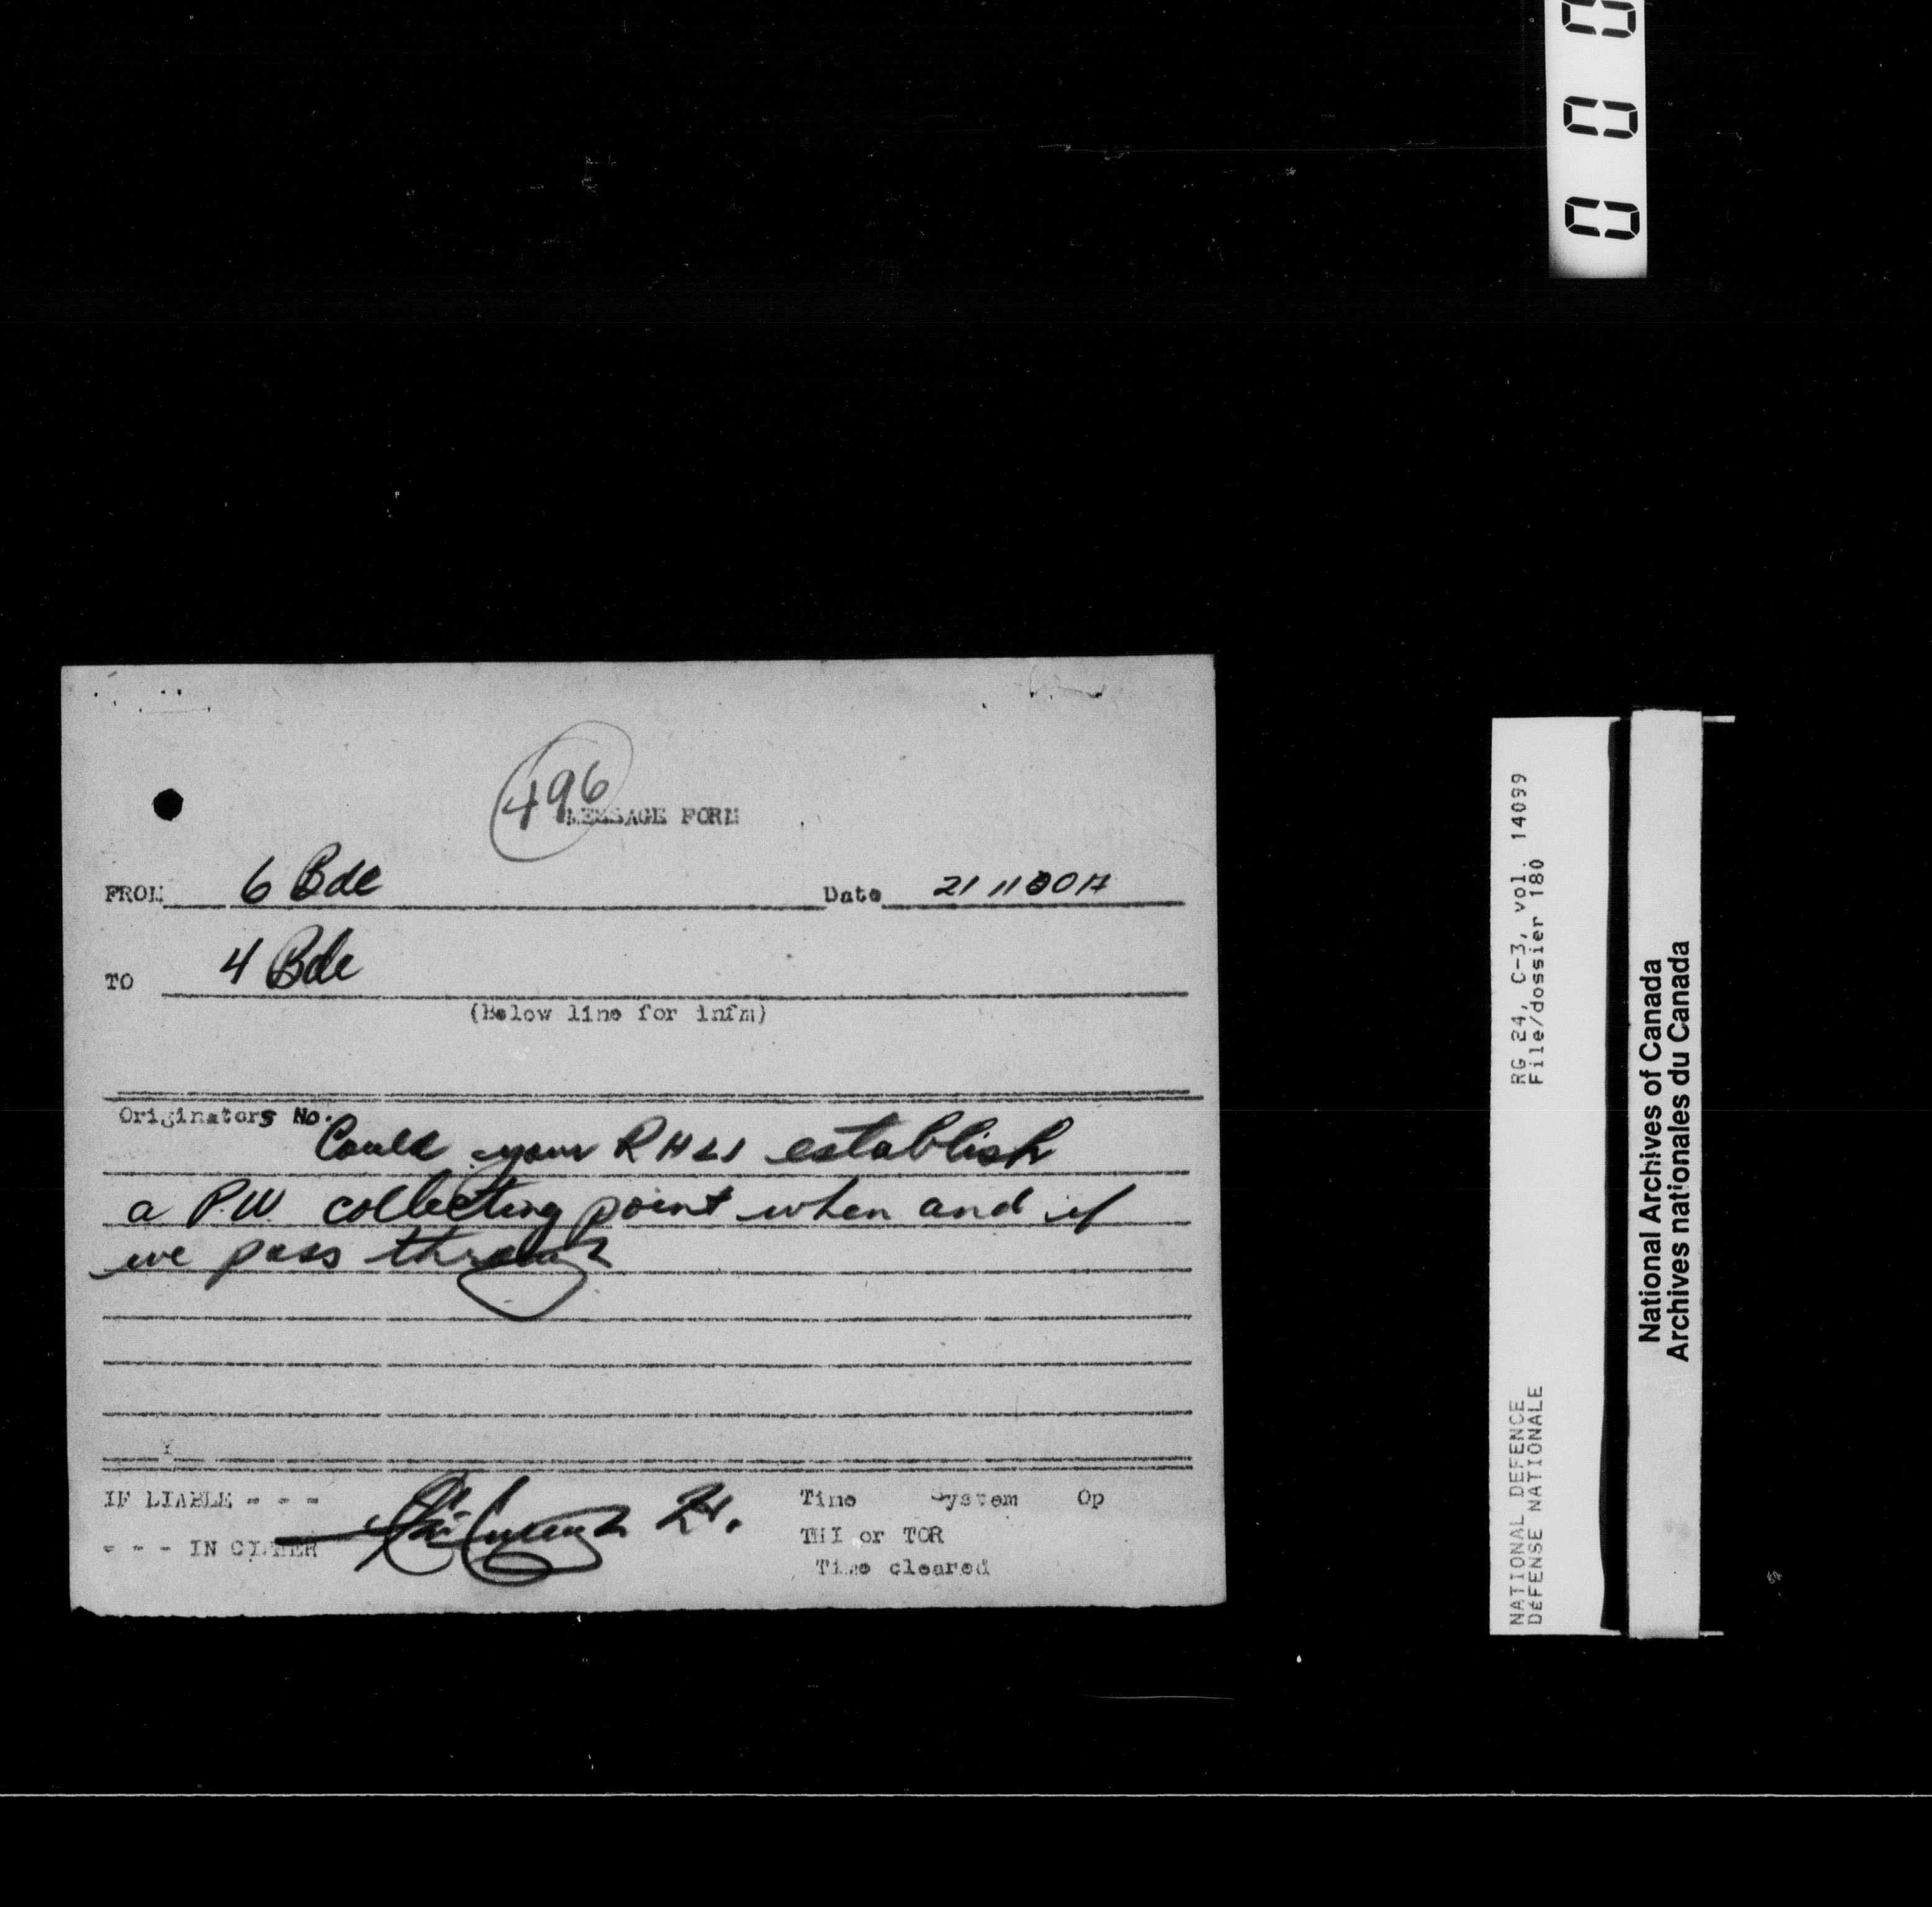 0 0 0
496
MESSAGE FORM
FROM 6 Bde Date 211100A
TO 4 Bde
(Below line for infm)
Originators No.
Could your RHLI establish
a P.W. collecting point when and if
we pass through
IF LIABLE - - - Lt. Time System Op
- - - IN CIPHER THI or TOR
Time cleared
RG 24, C-3, vol. 14099
File/dossier 180
NATIONAL DEFENCE
DÉFENSE NATIONALE
National Archives of Canada
Archives nationales du Canada